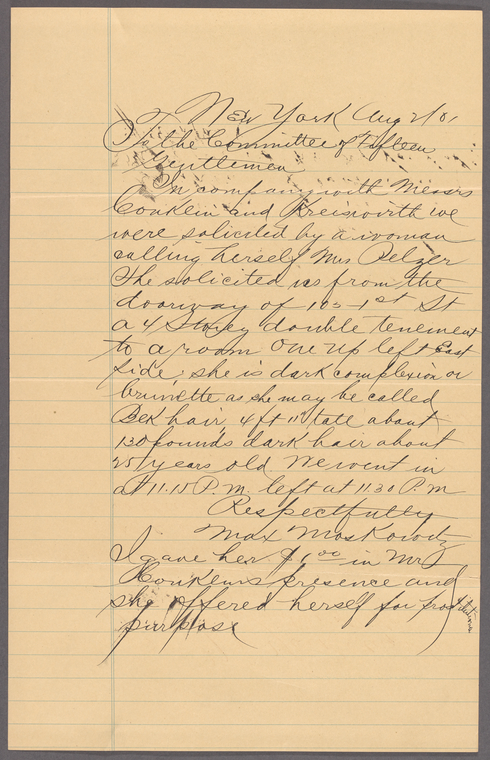 New York Aug 2/01
To the Committee of Fifteen
Gentlemen
In company with Messrs
Conklin and Kreisworth we
were solicited by a woman
calling herself Mrs Pelzer
She solicited us from the
doorway of 103 1st St
a 4 Storey double tenement
to a room One up left East
side, she is dark complexion or
brunette as she may be called
Bek hair, 4 ft 11" tale about
130 pounds dark hair about
25 years old. We went in
at 11.15 P.M. left at 11.30 P.M
Respectfully
Max Moskowitz
I gave her $1.00 in Mr
Conklins presence and
she offered herself for prostitution
purpose